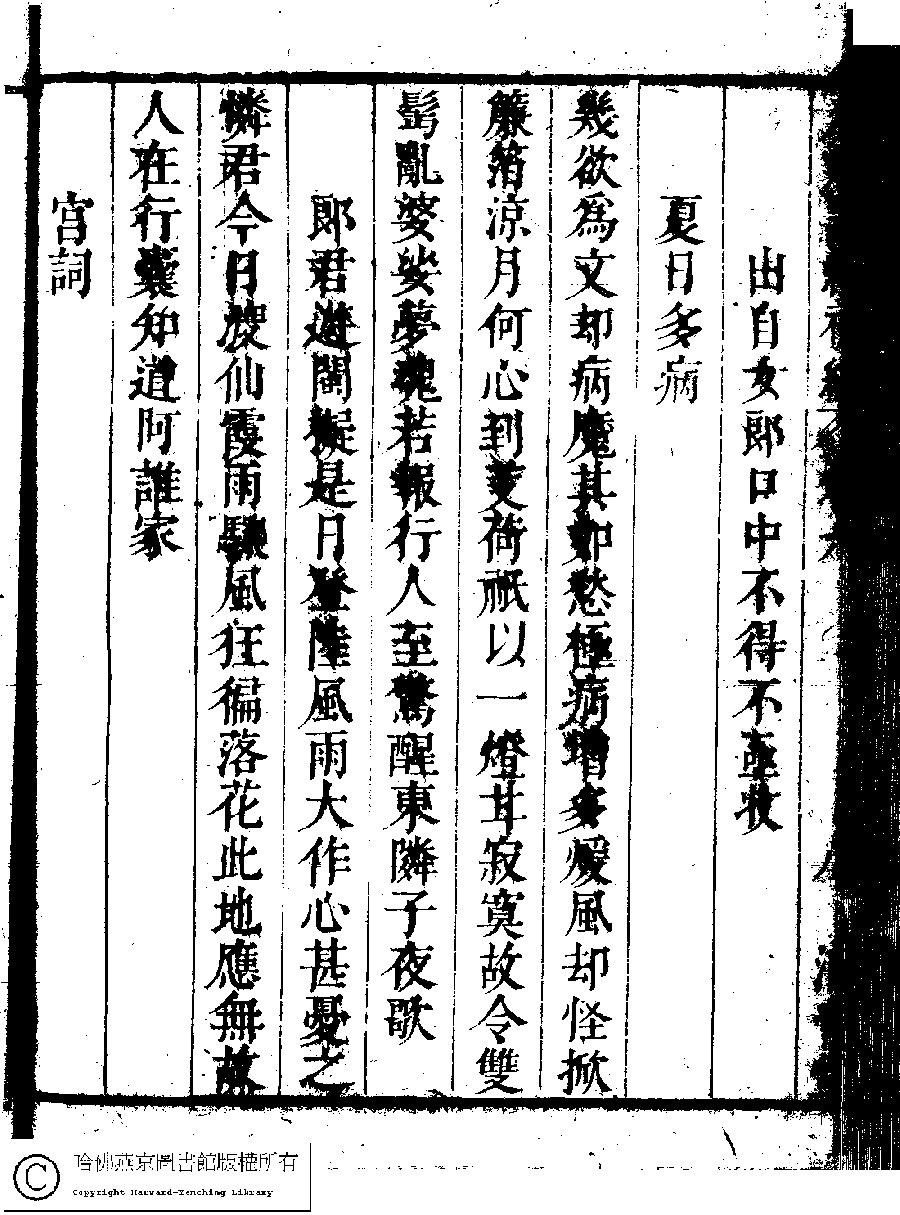 出自女郎口中不得不亟收
夏日多病
幾欲爲文却病魔其如愁極病增多煖風却怪掀
簾箔涼月何心到芰荷祇以一燈甘寂寞故令雙
髩亂婆娑夢魂若報行人至驚醒東隣子夜歌
郎君遊閩擬是日登陸風雨大作心甚憂之
憐君今日度仙霞雨驟風狂徧落花此地應無故
人在行囊知道阿誰家
宫詞
哈佛燕京圖書館版權所有
Copyright Harvard-Yenching Library